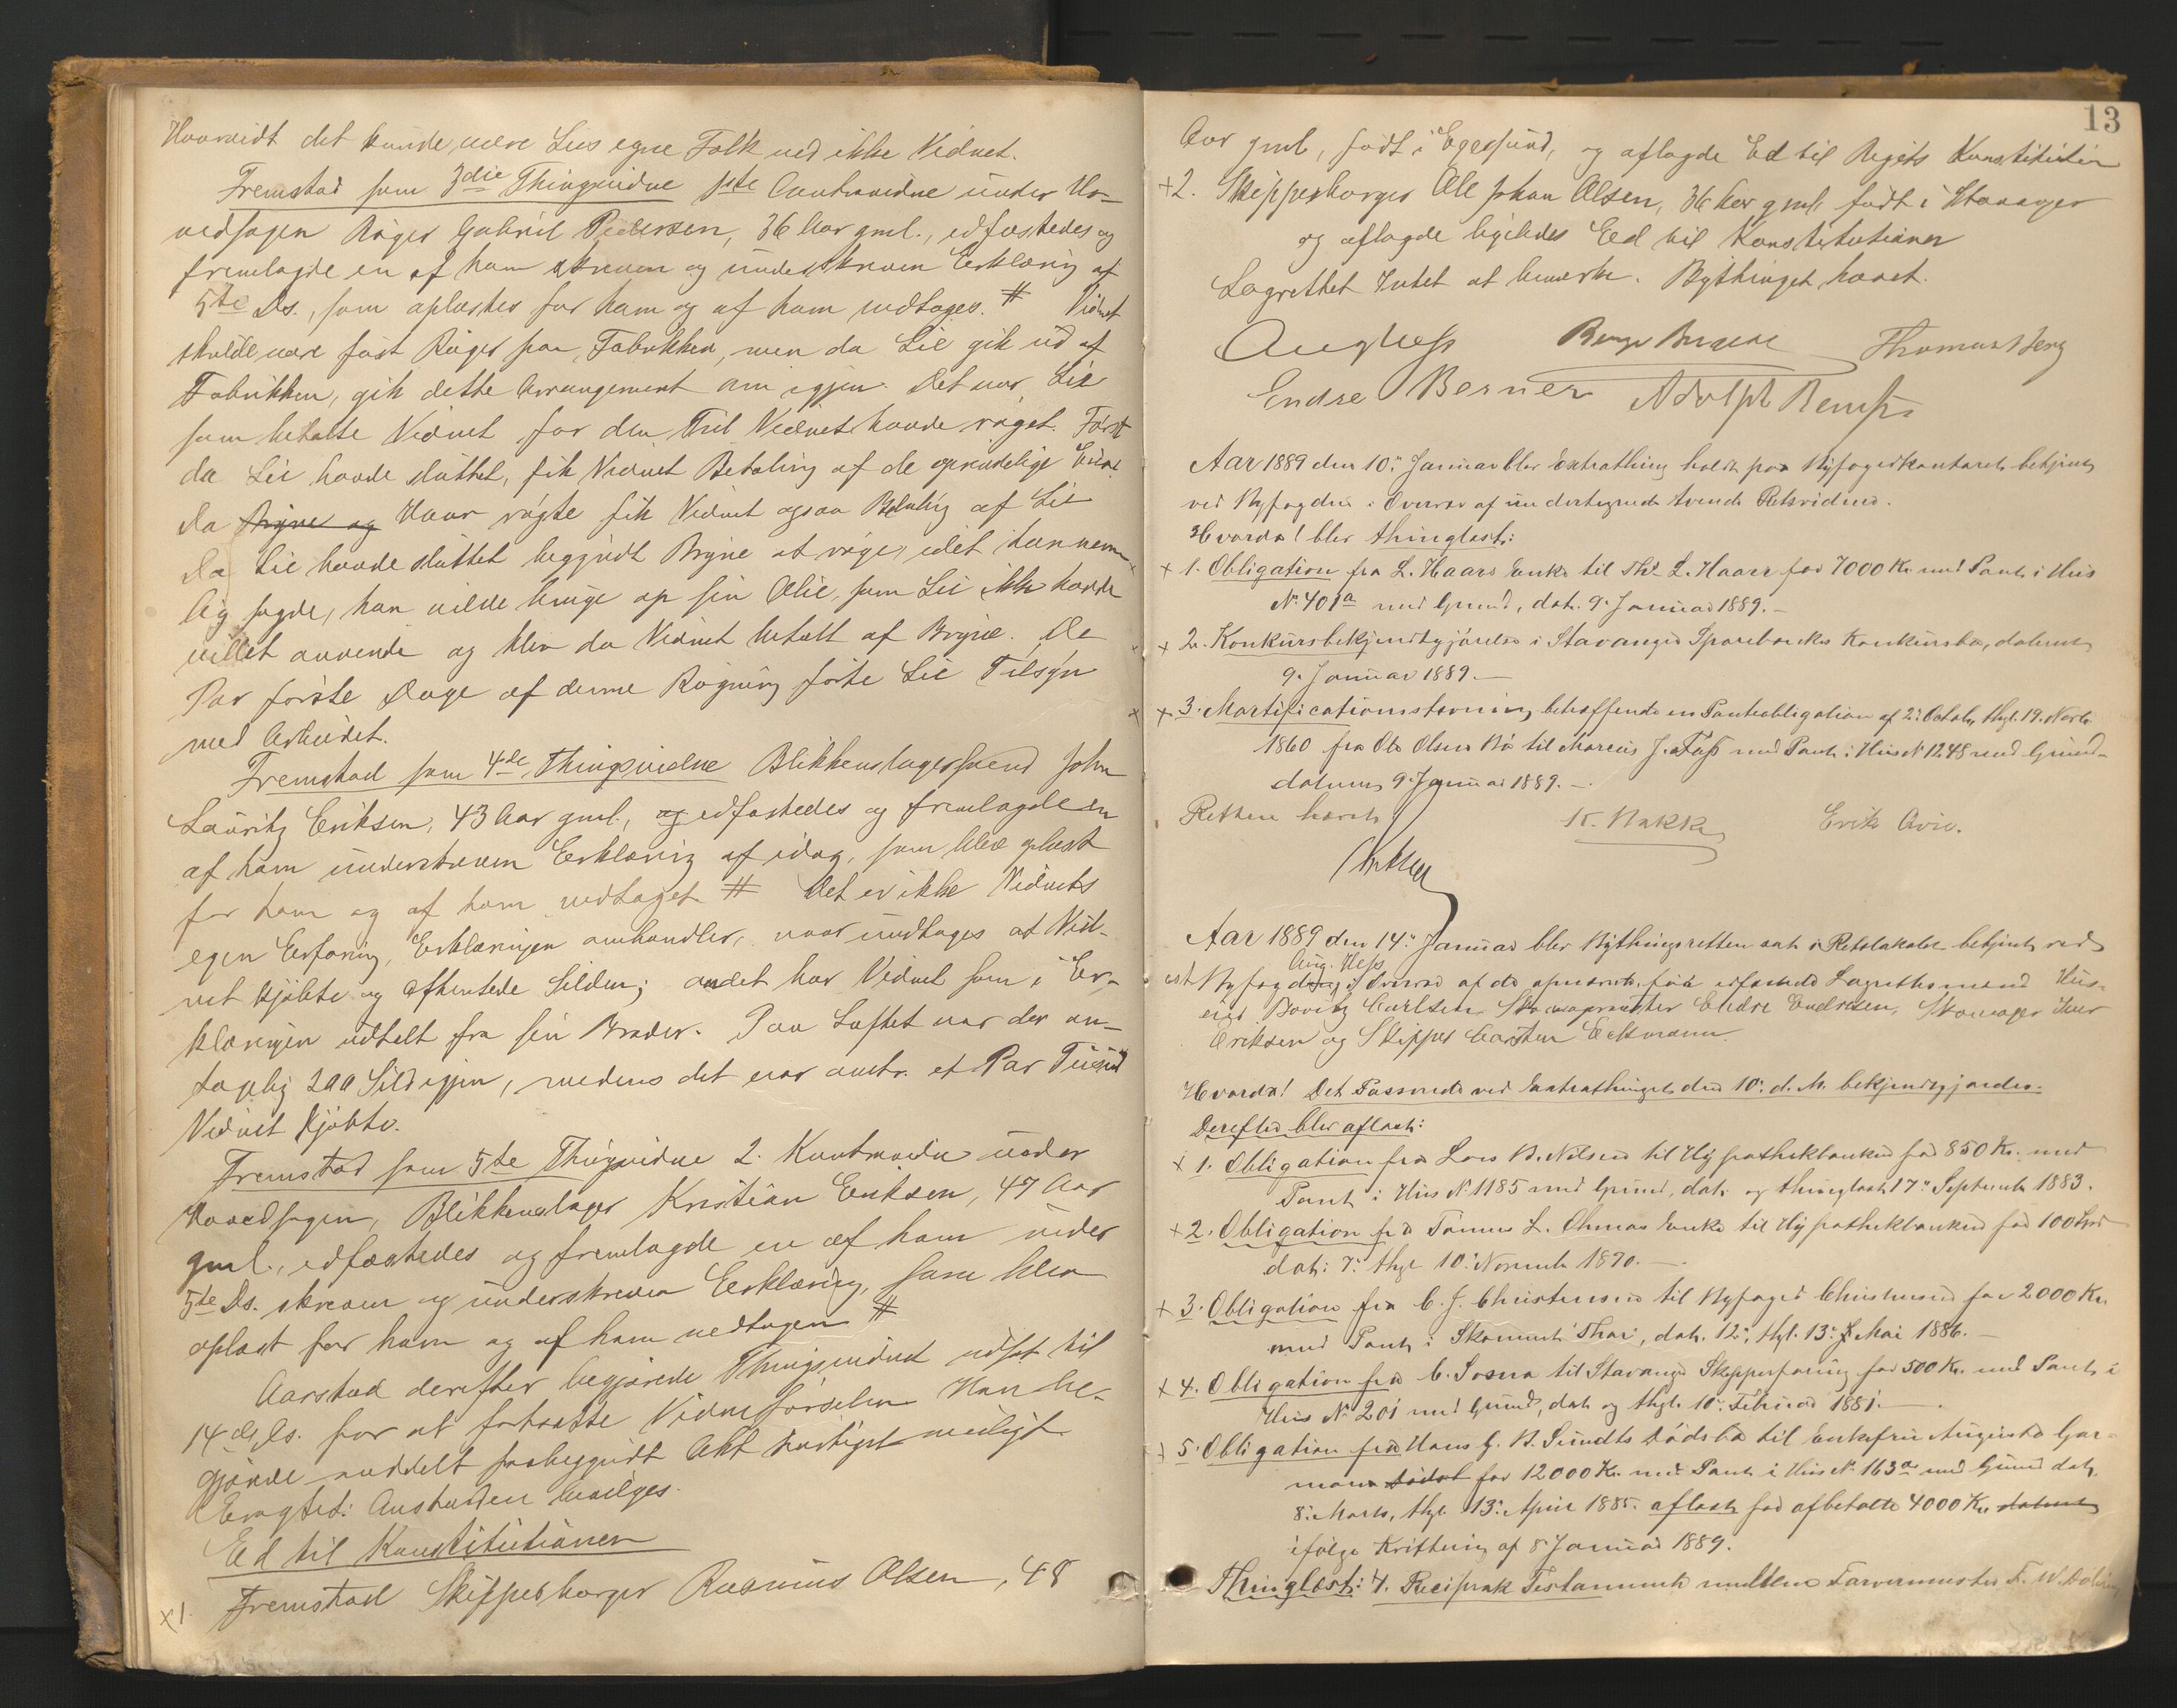 Hvorvidt det kunde være Lies egne Folk ved ikke Vidnet.
Fremstod som 3die Thingsvidne 1ste Contravidne under Ho-
vedsagen Røger Gabriel Pedersen, 36 Aar gml., edfæstedes og
fremlagde en af ham skreven og underskreven Erklæring af
5te Ds., som oplæstes for ham og af ham vedtoges. # Vidnet
skulde være fast Røger paa Fabrikken, men da Lie gik ud af
Fabrikken, gik dette Arrangement om igjen. Det var Lie
som betalte Vidnet for den Tid Vidnet havde røget. Først
da Lie havde sluttet, fik Vidnet Betaling af de oprindelige
Da Bryne og Haar røgte fik Vidnet ogsaa Betaling af Lie
Da Lie havde sluttet begyndte Bryne at røge, idet han
lig sagde, han vilde bruge op sin Olie, som Lie ikke havde
villet anvende og blev da Vidnet betalt af Bryne. De
Par første Dage af denne Røgning førte Lie Tilsyn
med Arbeidet.
Fremstod som 4de Thingsvidne Blikkenslagersvend John
Lauritz Eriksen, 43 Aar gml., og edfæstedes og fremlagde en
af ham underskreven Erklæring af idag, som blev oplæst
for ham og af ham vedtaget # Det er ikke Vidnets
egen Erfaring, Erklæringen omhandler, naar undtages at Vid-
net kjøbte og afhentede Silden; andet har Vidnet som i Er-
klæringen udtalt fra sin Broder. Paa Loftet var der an-
tagelig 200 Sild igjen, medens det var omtr. et Par Tusind
Vidnet kjøbte.
Fremstod som 5te Thingsvidne 2. Kontravidne under
Hovedsagen, Blikkenslager Kristian Eriksen, 47 Aar
gml., edfæstedes og fremlagde en af ham under
5te Ds. skreven og underskreven Erklæring, som blev
oplæst for ham og af ham vedtagen #
Aarstad derefter begjærede Thingsvidnet udsat til
14de Ds. for at fortsætte Vidneførselen Han be-
gjærede meddelt paabegyndt Akt hurtigst muligt
Eragtet: Anstanden bevilges.
Ed til Konstitutionen
x1. Fremstod Skipperborger Rasmus Olsen, 48
13
Aar gml, født i Egersund, og aflagde Ed til Rigets Konstitution
+2. Skipperborger Ole Johan Olsen, 36 Aar gml, født i Stavanger
og aflagde ligeledes Ed til Konstitutionen
Lagrettet Intet at bemærke. Bythinget hævet.
Aug Hess Thomas Berg
Endre Berner Adolph
Aar 1889 den 10de Januar blev Extrathing holdt paa Byfogedkontoret betjent
ved Byfogden i Overvær af undertegnede tvende Retsvidner.
Hvorda! blev thinglæst:
+ 1. Obligation fra L. Haars Enke til Th. L. Haar for 7000 Kr. med Pant i Hus
No. 401a med Grund, dat. 9. Januar 1889.
+ 2. Konkursbekjendtgjørelse i Stavanger Sparebankes Konkursbo, dateret
9. Januar 1889.
+ 3. Mortificationsstevning betræffende en Panteobligation af 2. Octob., thgl. 19. Novb.
1860 fra Ole Olsen Bø til Marcus J. med Pant i Hus No 1248 med Grund
dateret 9. Januar 1889.
Retten hævet K. Bakke Erik
Aar 1889 den 14de Januar blev Bythingsretten sat i Retslokalet betjent ved
Aug. Hess
cst Byfogd i Overvær af de opnævnte før edfæstede Lagrettesmænd Hus-
eier Carlsen, Skomagermester Endre Endresen, Skomager Iver
Eriksen og Skipper Carsten Eckmann.
Hvorda! Det Passerede ved Extrathinget den 10. d. M. bekjendtgjordes.
Derefter blev aflæst:
+ 1. Obligation fra Lars B. Nilsen til Hypothekbanken for 850 Kr. med
Pant i Hus No 1185 med Grund, dat. og thinglæst 17. Septemb. 1883.
+ 2. Obligation fra Tønnes L. Ohmas Enke til Hypothekbanken for 100 Spd
dat. 7. thgl. 10. Novemb 1870.
+ 3. Obligation fra C. J. Christensen til Byfoged Christensen for 2000 Kr.
med Pant i Skonnert Thor, dat. 12., thgl. 13. Mai 1886.
+ 4. Obligation fra C. til Stavanger Skipperforening for 500 Kr. med Pant i
Hus No 201 med Grund, dat. og thgl. 10. Februar 1881.
+ 5. Obligation fra Hans G. B. Sundts Dødsbo til Enkefru Augusta Gar-
mann for 12000 Kr. med Pant i Hus No 163a med Grund dat.
8. Marts, thgl. 13. April 1885. aflæst for afbetalte 4000 Kr. dateret
ifølge Kvittering af 8 Januar 1889.
Thinglæst: 1. Reciprok Testament mellem Farvermester F. W.